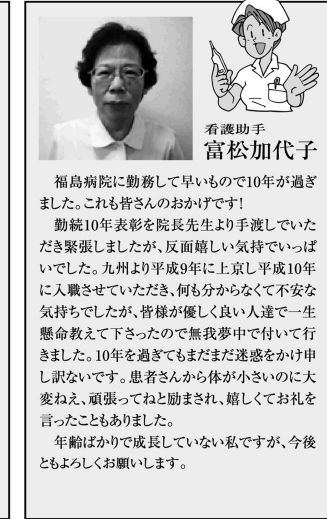 看護助手
富松加代子
福島病院に勤務して早いもので10年が過ぎ
ました。これも皆さんのおかげです!
勤続10年表彰を院長先生より手渡していた
だき緊張しましたが、反面嬉しい気持でいっぱ
いでした。九州より平成9年に上京し平成10年
に入職させていただき、何も分からなくて不安な
気持ちでしたが、皆様が優しく良い人達で一生
懸命教えて下さったので無我夢中で付いて行
きました。10年を過ぎてもまだまだ迷惑をかけ申
し訳ないです。患者さんから体が小さいのに大
変ねえ、頑張ってねと励まされ、嬉しくてお礼を
言ったこともありました。
年齢ばかりで成長していない私ですが、今後
ともよろしくお願いします。